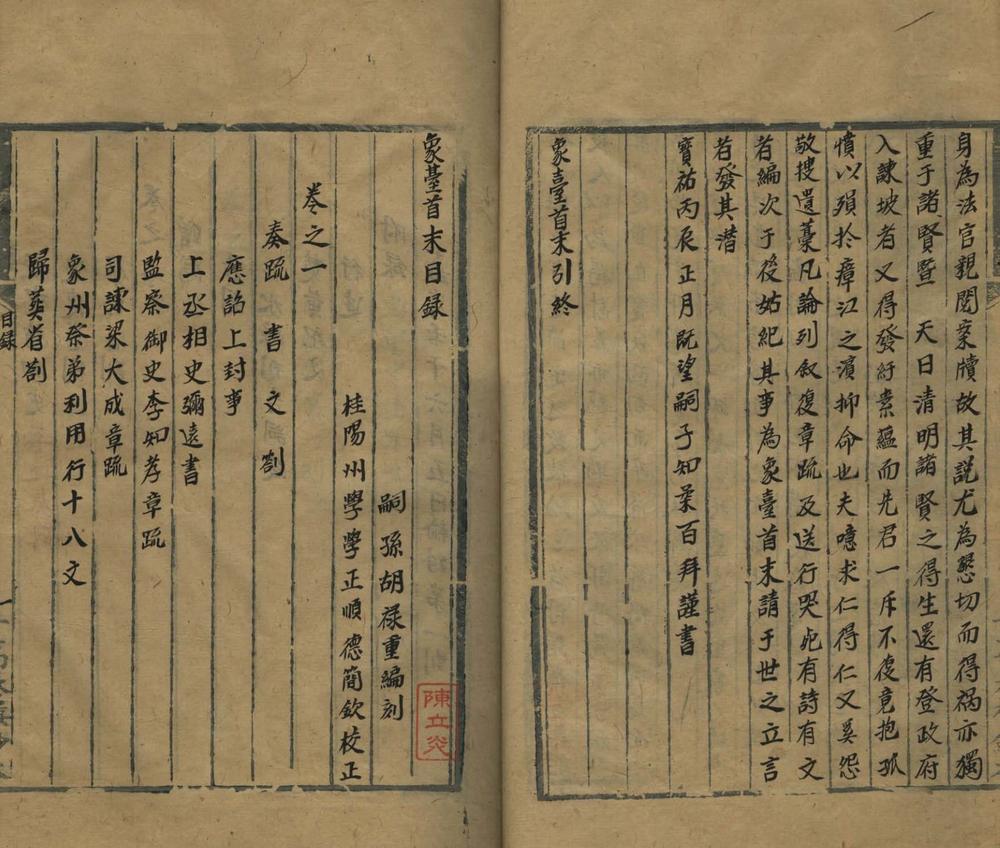 身為法官親閱案牘故其說尤為懇切而得禍亦獨
重于諸賢暨　天日清明諸賢之得生還有登政府
入諫坡者又得發紓素蘊而先君一斥不復竟抱孤
憤以殞於瘴江之濵抑命也夫噫求仁得仁又奚怨
敬搜遺藁凡論列叙復章疏及送行哭死有詩有文
者編次于後姑紀其事為象臺首末請于世之立言
者發其潛
寶祐丙辰正月既望嗣子知柔百拜謹書
象臺首末引終
象臺首末目録
嗣孫胡禄重編刻
桂陽州學學正順德簡欽校正
陳立炎
卷之一
奏疏　書　文　劄
應詔上封事
上丞相史彌遠書
監察御史李知孝章疏
司諫梁大成章疏
象州祭弟利用行十八文
歸葬省劄
目録